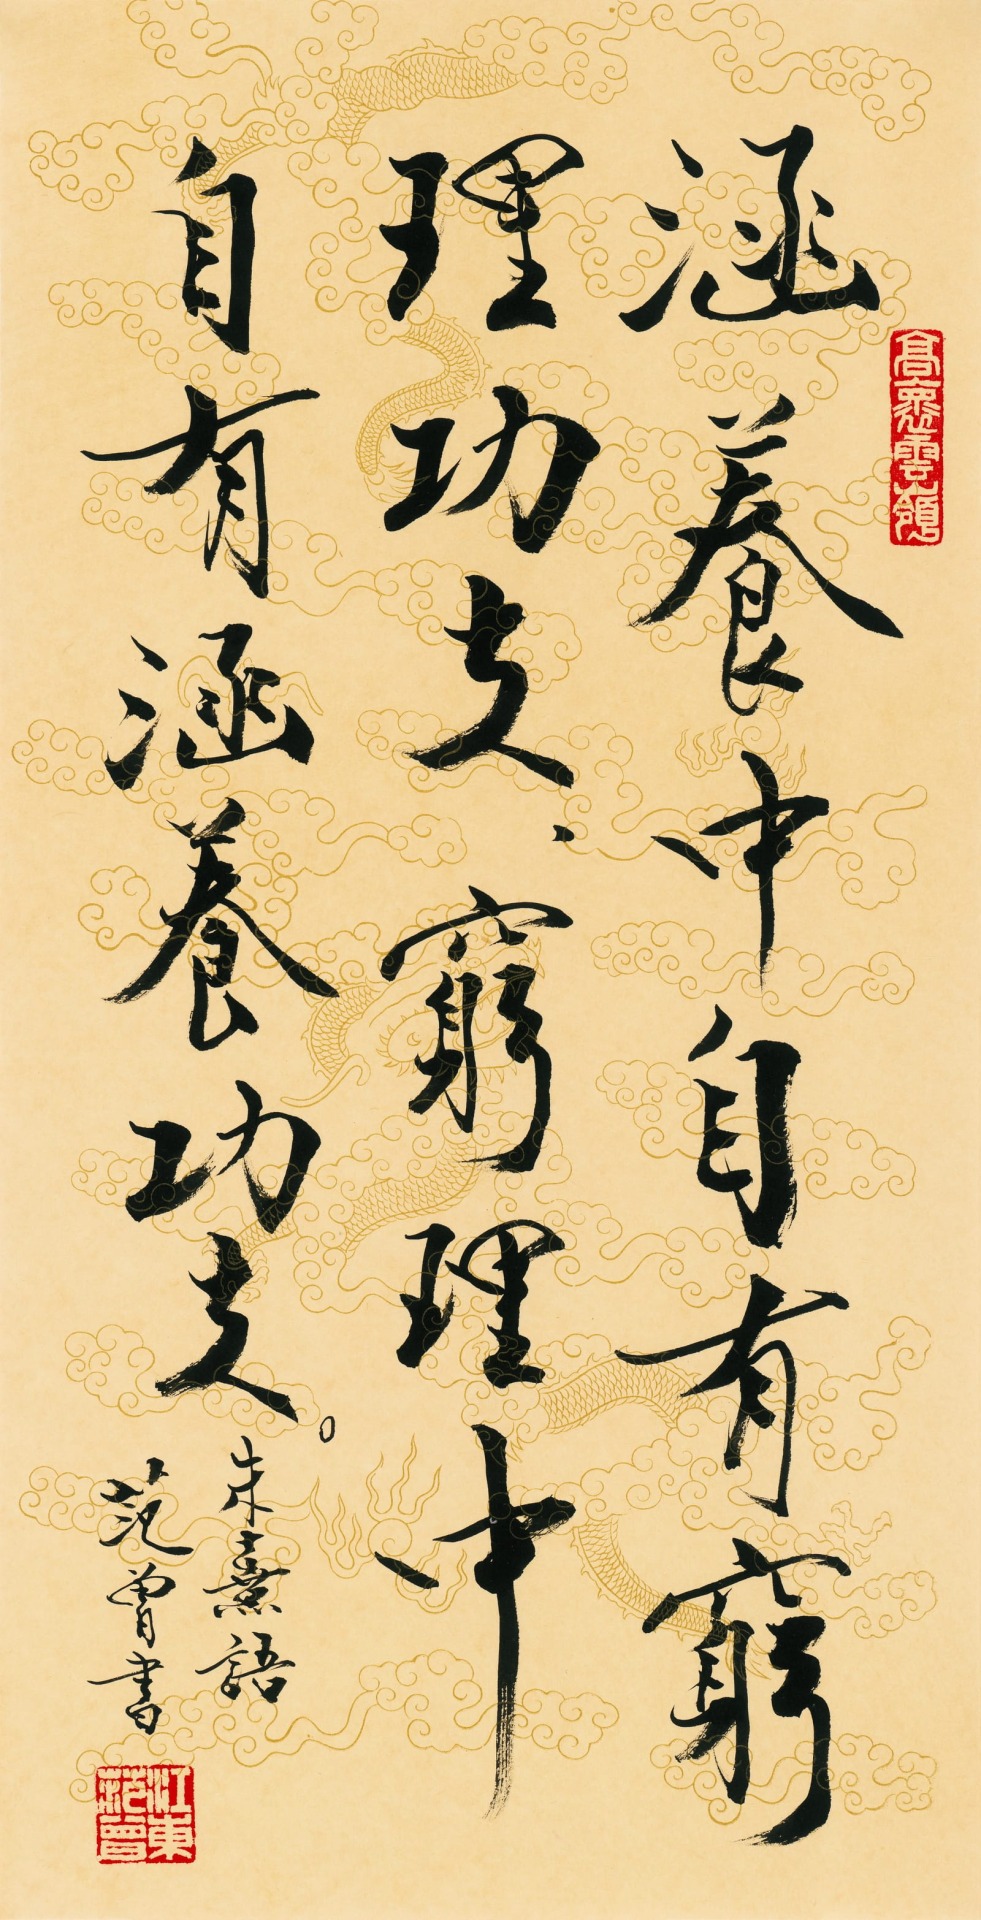 高褱雲嶺
涵養中自有窮
理功夫、窮理中
自有涵養功夫。
朱熹語
范曾書
江東
范曾